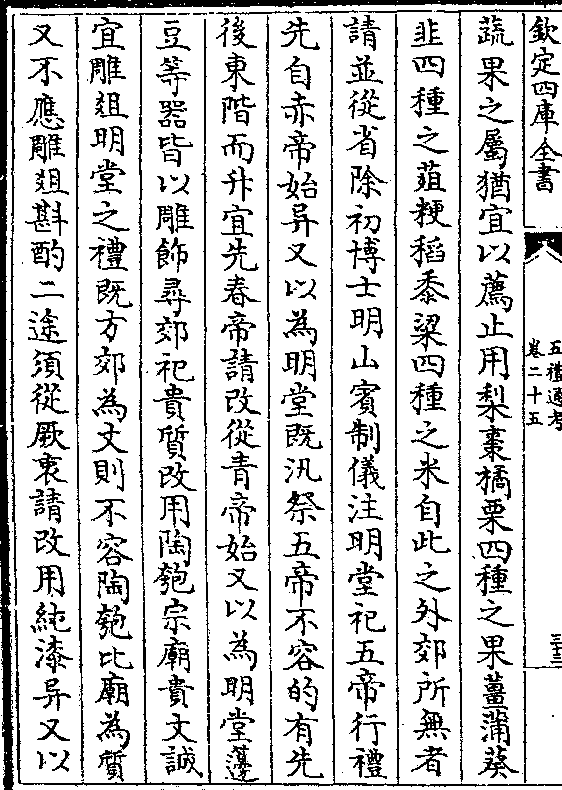 欽定四庫全書
五禮通考
卷二十五
三十二
蔬果之屬猶宜以薦止用梨棗橘栗四種之果薑蒲葵
韭四種之葅粳稻黍粱四種之米自此之外郊所無者
請並從省除初博士明山賓制儀注明堂祀五帝行禮
先自赤帝始异又以為明堂既汎祭五帝不容的有先
後東階而升宜先春帝請改從青帝始又以為明堂籩
豆等器皆以雕飾尋郊祀貴質改用陶匏宗廟貴文誠
宜雕爼明堂之禮既方郊為文則不容陶匏比廟為質
又不應雕爼斟酌二途須從厥衷請改用純漆异又以